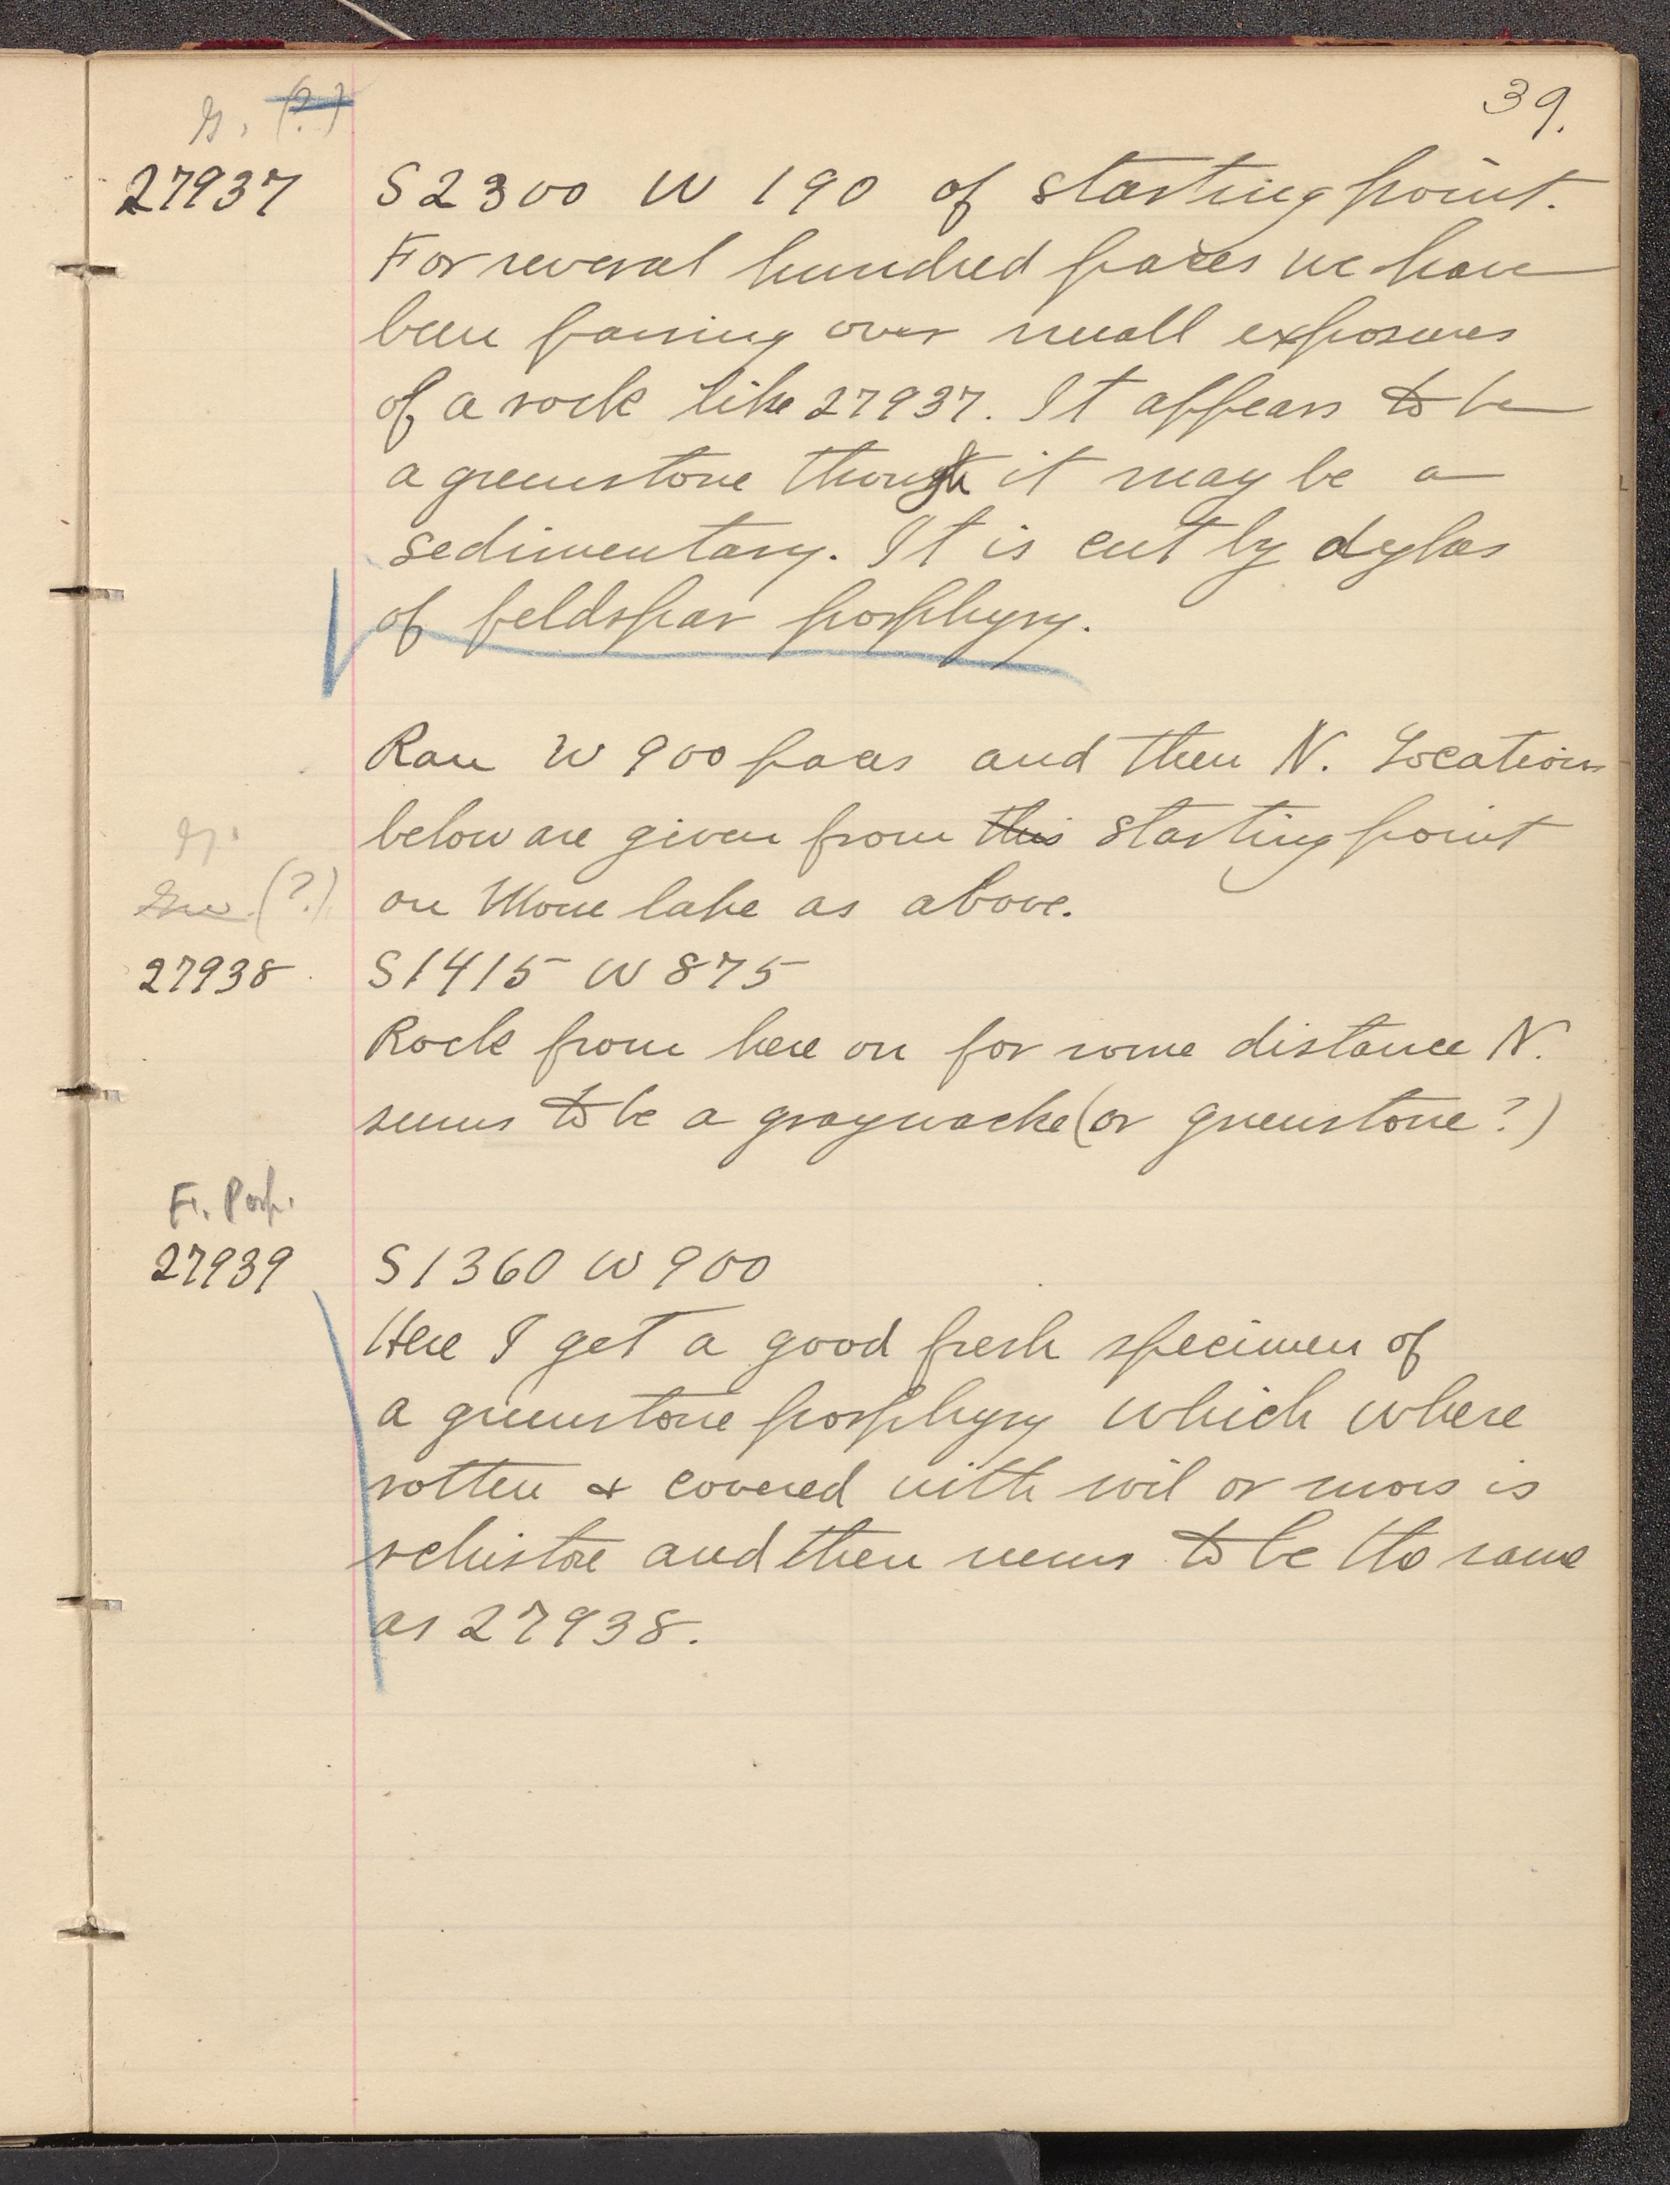 39.
G. (?)
27937 S 2300 W 190 of starting point.
For several hundred paces we have
been passing over small exposures
of a rock like 27937. It appears to be
a greenstone though it may be a
sedimentary. It is cut by dykes
of feldspar porphyry.
Ran W 900 paces and then N. Locations
below are given from this starting point
G.
(?) on Moose lake as above.
27938 S 1415 W 875
Rock from here on for some distance N.
seems to be a graywacke (or greenstone?)
F. Porp.
27939 S 1360 W 900
Here I get a good fresh specimen of
a greenstone porphyry which where
rotten & covered with soil or moss is
schistose and then seems to be the same
as 27938.